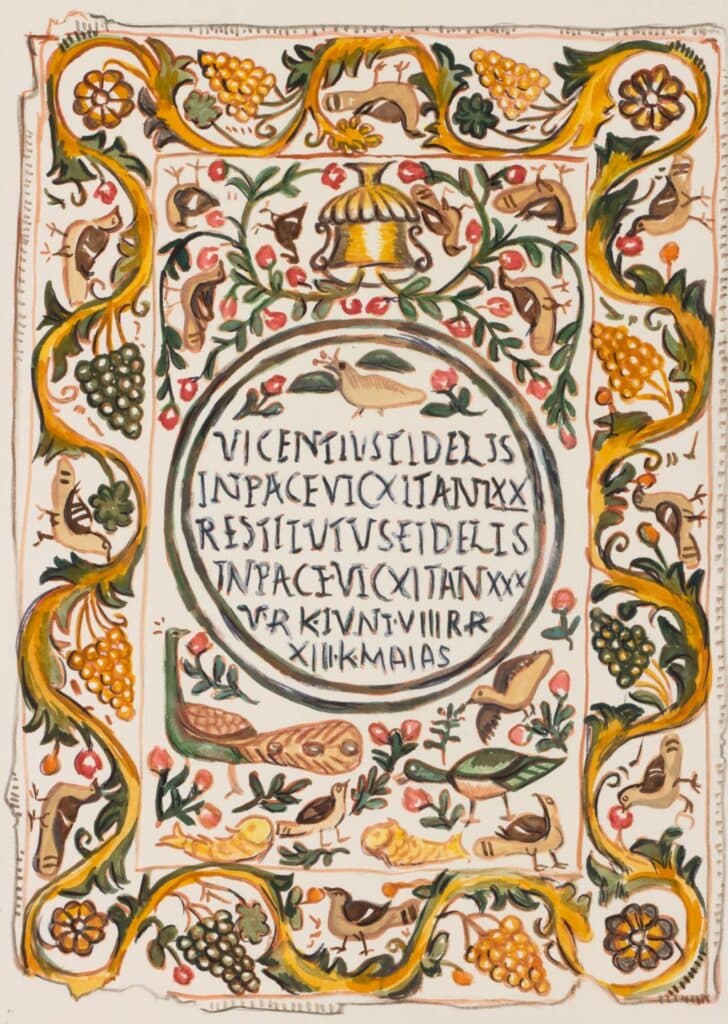 VICENTIUSTIDELIS
INPACEVICXITANIXX
RESTITUTUSEIDELIS
INPACEVICXITANXXX
V·R K·IVNI·VIIIR·R
XIII·KMAIAS